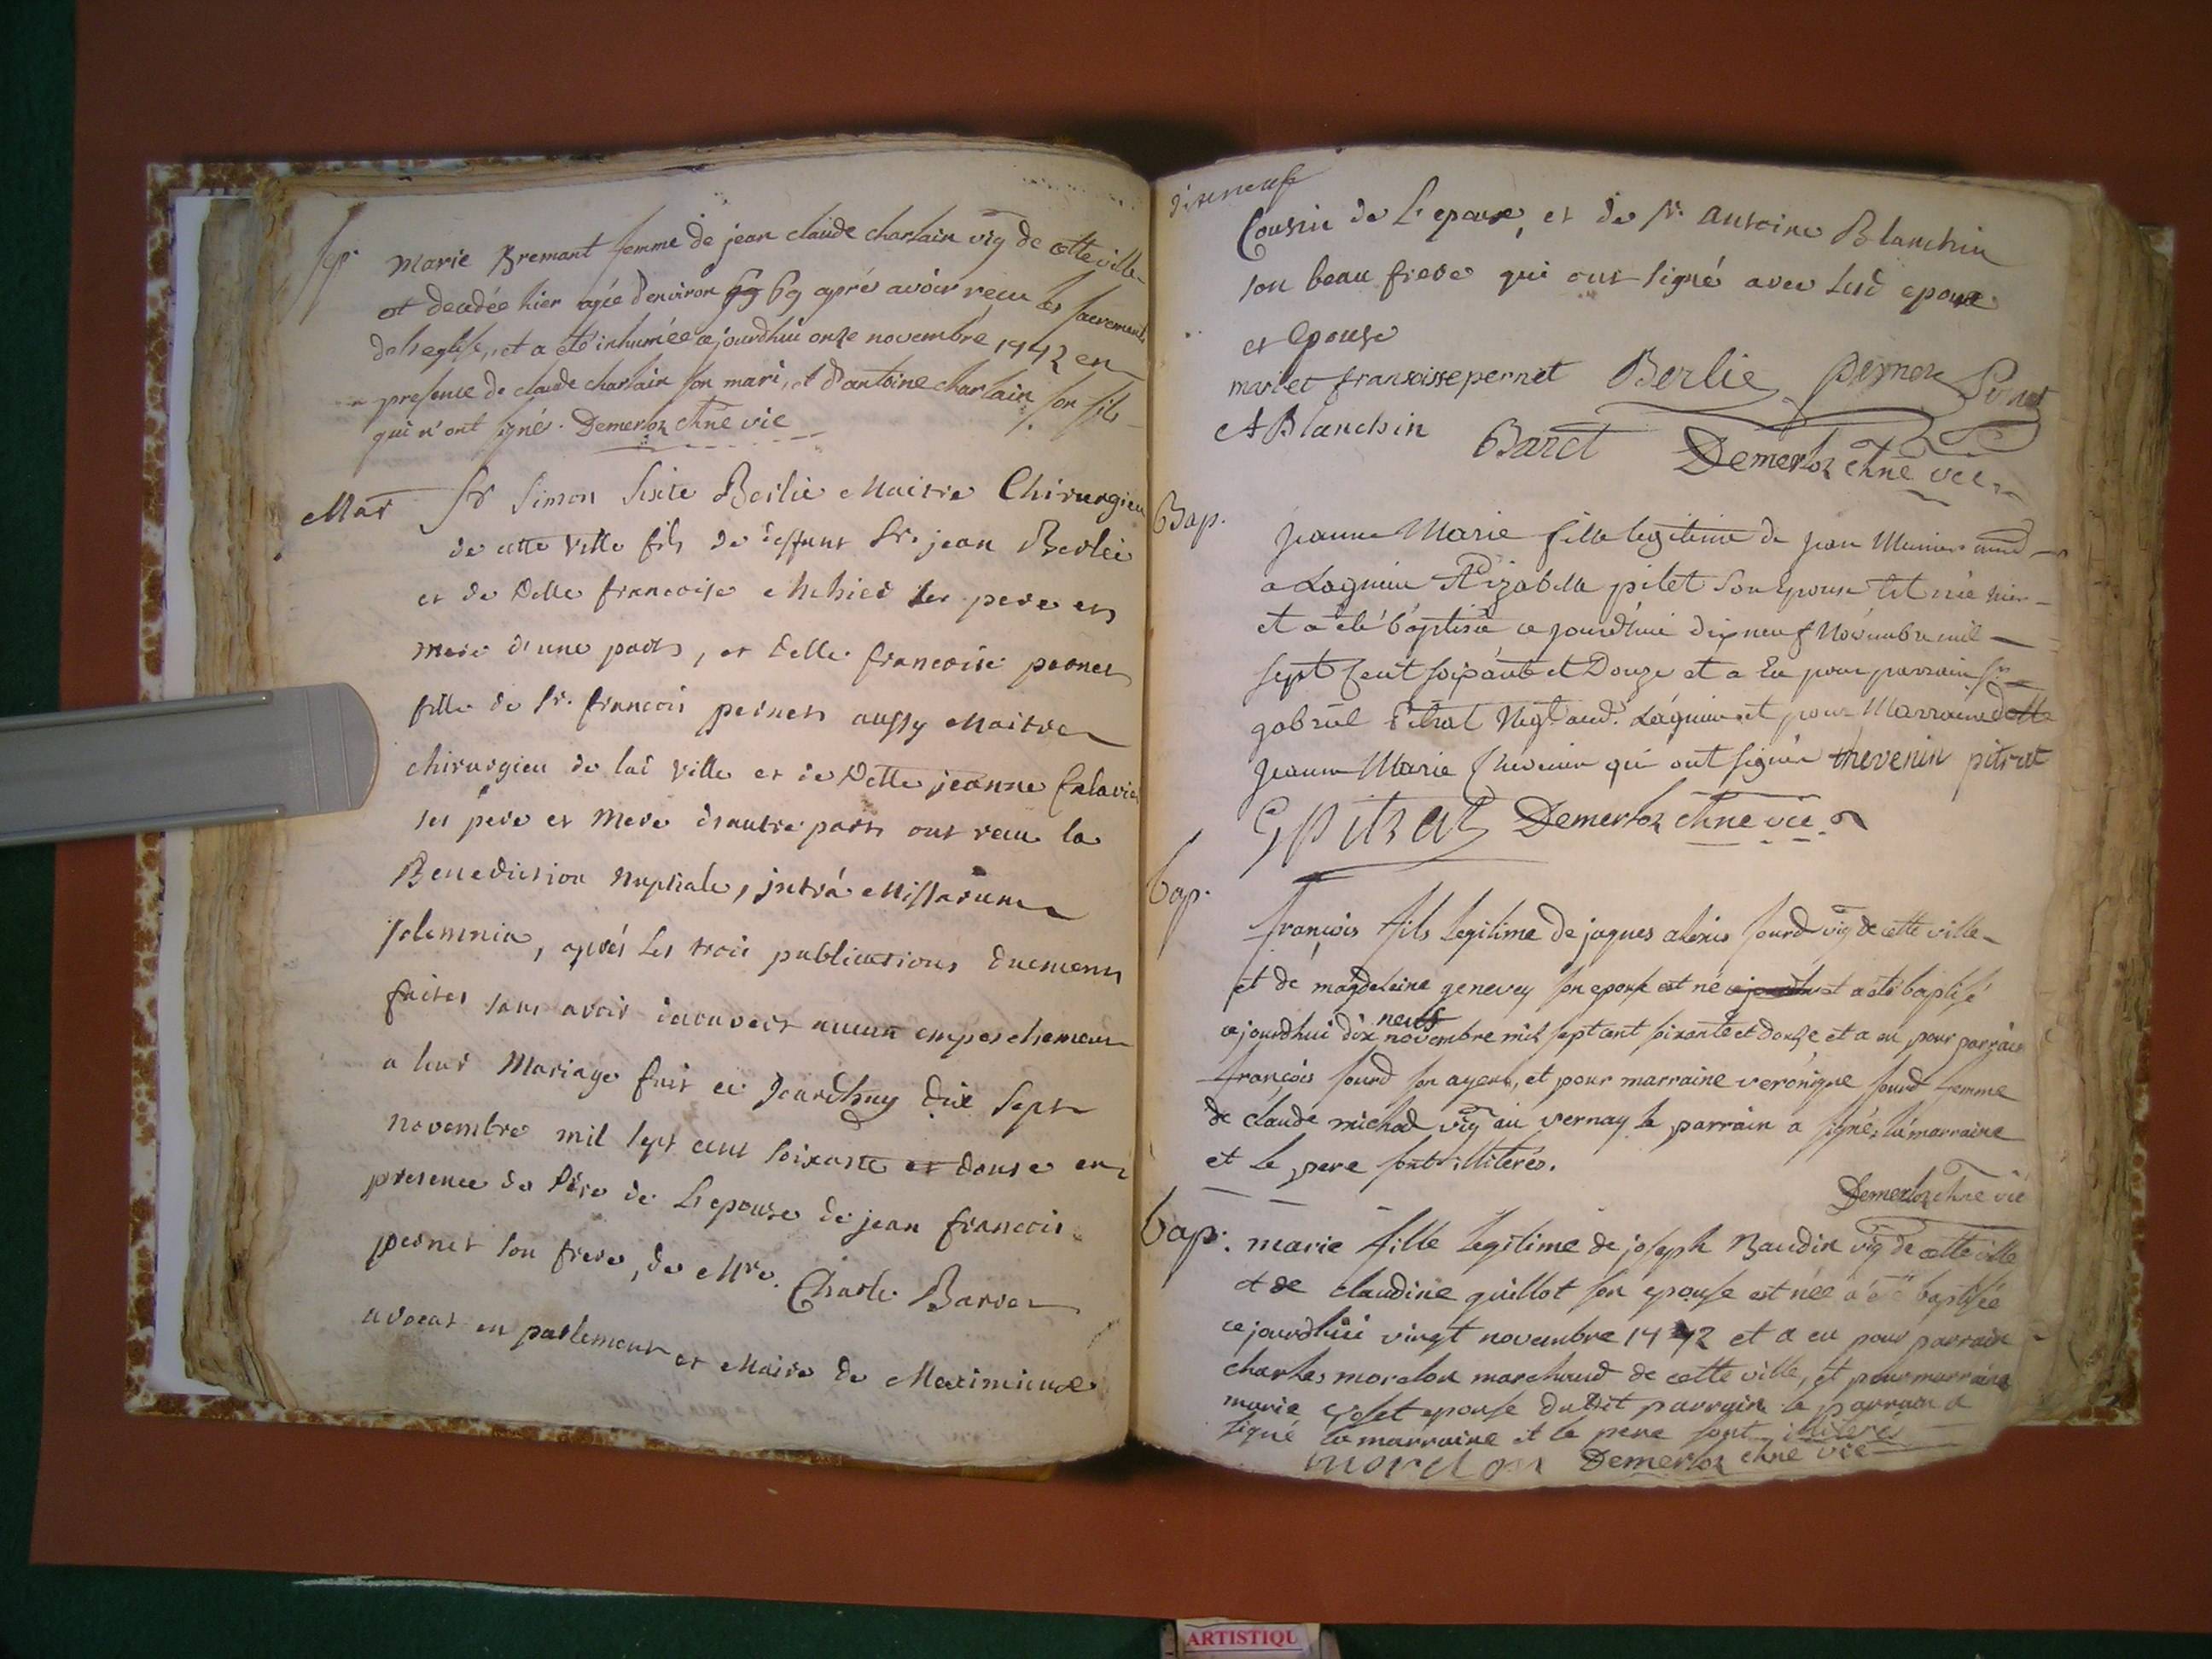 Sep. marie Bremant femme de jean claude charlain vig de cette ville
est decedée hier agée d'environ 69 69 apré avoir recu les sacrements
de l'eglise, et a été inhumée cejourdhui onze novembre 1772 en
presence de claude charlain son mari, et d'antoine charlain son fils
qui n'ont signés. Demerloz chne vic
Mar Sr Simon Sixte Berlie Maitre Chirurgien
de cette Ville fils de deffunt Sr. jean Berlie
et de Delle francoise ses pere et
mere d'une part, et delle francoise pernet
fille de Sr. francois pernet aussy Maitre
chirurgien de lad ville et de Delle jeanne
ses pere et mere d'autre part ont recu la
Benediction Nuptiale, intrá Missarum
solemnia, aprés les trois publications duement
faites sans avoir decouvert aucun empeschement
a leur Mariage fait ce Jourdhuy dix sept
novembre mil sept cent soixante et douse en
presence du Pere de L'epouse de jean francois
pernet son frere, de Mre. Charle Baret
avocat en parlement et Maire de Meximieux
dixneuf
Cousin de L'epoux, et de Sr. Antoine Blanchin
son beau frere qui ont signé avec lesd epoux
et epouse
mariet fransoisse pernet Berlie pernet
A Blanchin Baret Demerloz chne vic
Bap. Jeanne Marie fille legitime de Jean Munier md
a Lagnieu et d'izabella pitet son Epouse est née hier
et a été baptisée ce jourd'hui dix neuf Novembre mil
sept Cent soixante et Douze et a Eu pour parrain Sr
gabriel Pitrat Negt aud. Lagnieu et pour Marraine delle
Jeanne Marie thevenin qui ont signés thevenin pitrat
G pitrat Demerloz chne vic
bap. françois fils legitime de jaques alexis sourd vig de cette ville
et de magdeleine genevey son epouse est né cejourdhui et a été baptisé
cejourdhui dix neuf novembre mil sept cent soixante et douze et a eu pour parrain
françois sourd son ayeul, et pour marraine veronique sourd femme
de claude michad vig au vernay le parrain a signé, la marraine
et le pere sont illiterés.
Demerloz chne vic
bap. marie fille legitime de joseph Baudin vig de cette ville
et de claudine guillot son epouse est née a été baptisée
cejourdhui vingt novembre 1772 et a eu pour parrain
charles morelon marchand de cette ville, et pour marraine
marie epouse dudit parrain le parrain a
signé la marraine et le pere sont illiterés
morelon Demerloz chne vic
ARTISTIQU